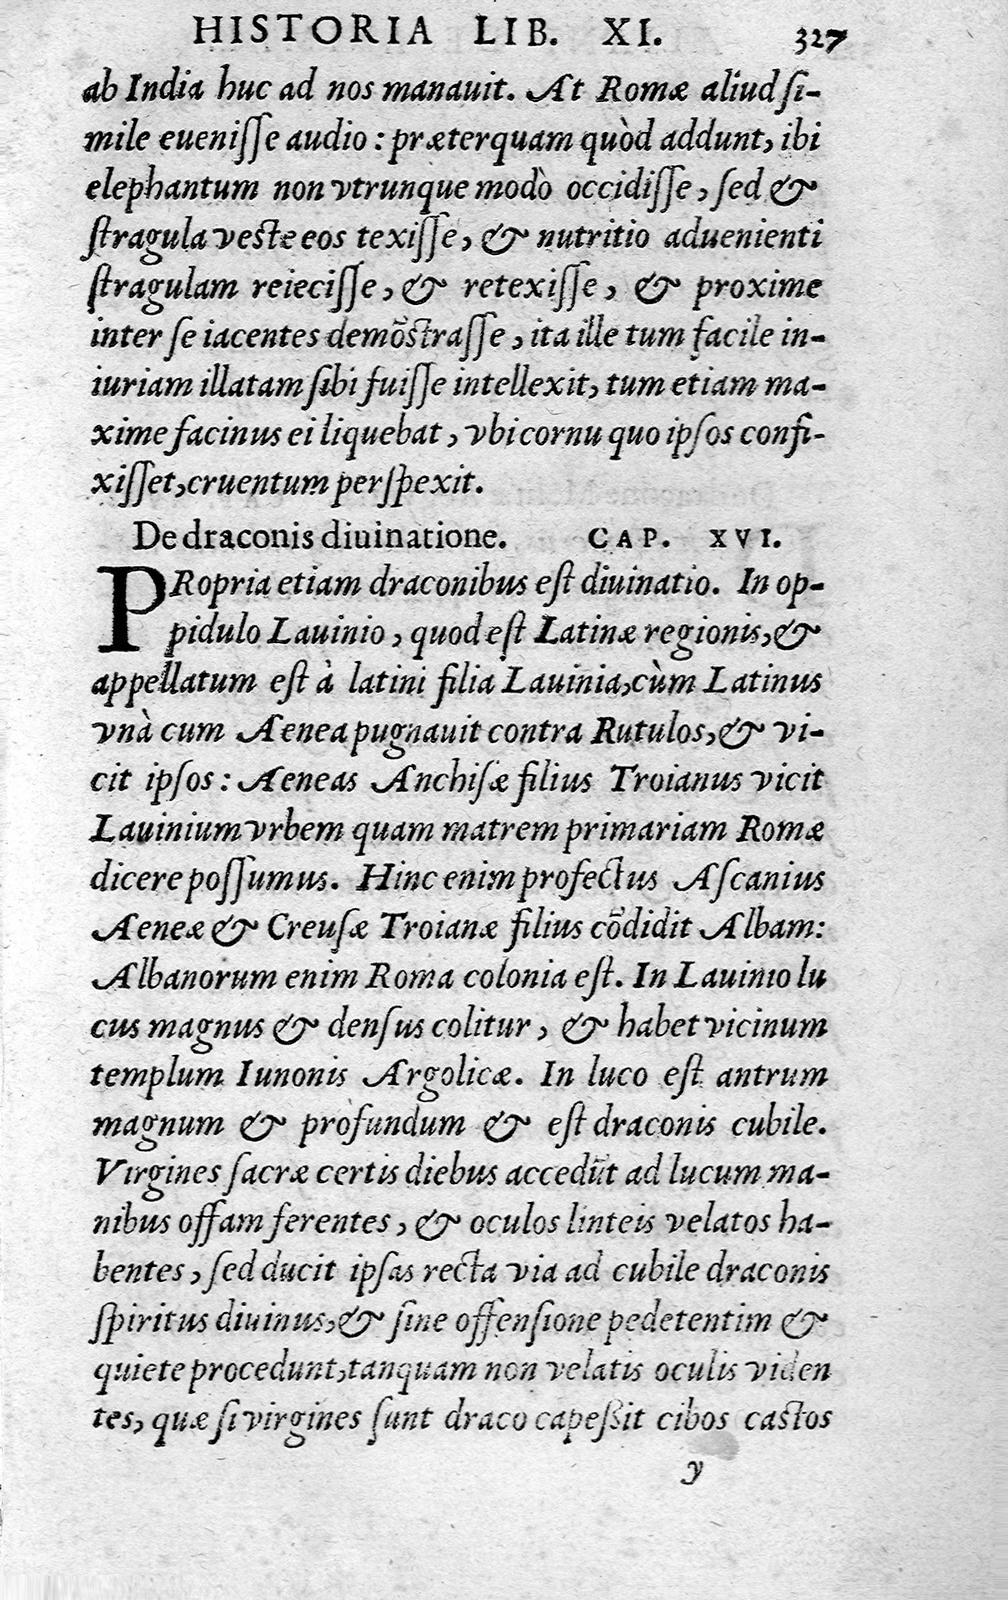 HISTORIA LIB. XI. 327
ab India huc ad nos manauit. At Romæ aliud ſi-
mile eueniſſe audio : præterquam quòd addunt, ibi
elephantum non vtrunque modò occidiſſe, ſed &
ſtragula veste eos texiſſe, & nutritio aduenienti
ſtragulam reieciſſe, & retexiſſe, & proxime
inter ſe iacentes demõstraſſe, ita ille tum facile in-
iuriam illatam ſibi fuiſſe intellexit, tum etiam ma-
xime facinus ei liquebat, vbi cornu quo ipſos confi-
xiſſet, cruentum perſpexit.
De draconis diuinatione. CAP. XVI.
PRopria etiam draconibus eſt diuinatio. In op-
pidulo Lauinio, quod eſt Latinæ regionis, &
appellatum eſt à latini filia Lauinia, cùm Latinus
vnà cum Aenea pugnauit contra Rutulos, & vi-
cit ipſos: Aeneas Anchiſæ filius Troianus vicit
Lauinium vrbem quam matrem primariam Romæ
dicere poſſumus. Hinc enim profectus Aſcanius
Aeneæ & Creuſæ Troianæ filius cõdidit Albam:
Albanorum enim Roma colonia eſt. In Lauinio lu
cus magnus & denſus colitur, & habet vicinum
templum Iunonis Argolicæ. In luco eſt antrum
magnum & profundum & eſt draconis cubile.
Virgines ſacræ certis diebus accedũt ad lucum ma-
nibus offam ferentes, & oculos linteis velatos ha-
bentes, ſed ducit ipſas recta via ad cubile draconis
ſpiritus diuinus, & ſine offenſione pedetentim &
quiete procedunt, tanquam non velatis oculis viden
tes, quæ ſi virgines ſunt draco capeßit cibos castos
y